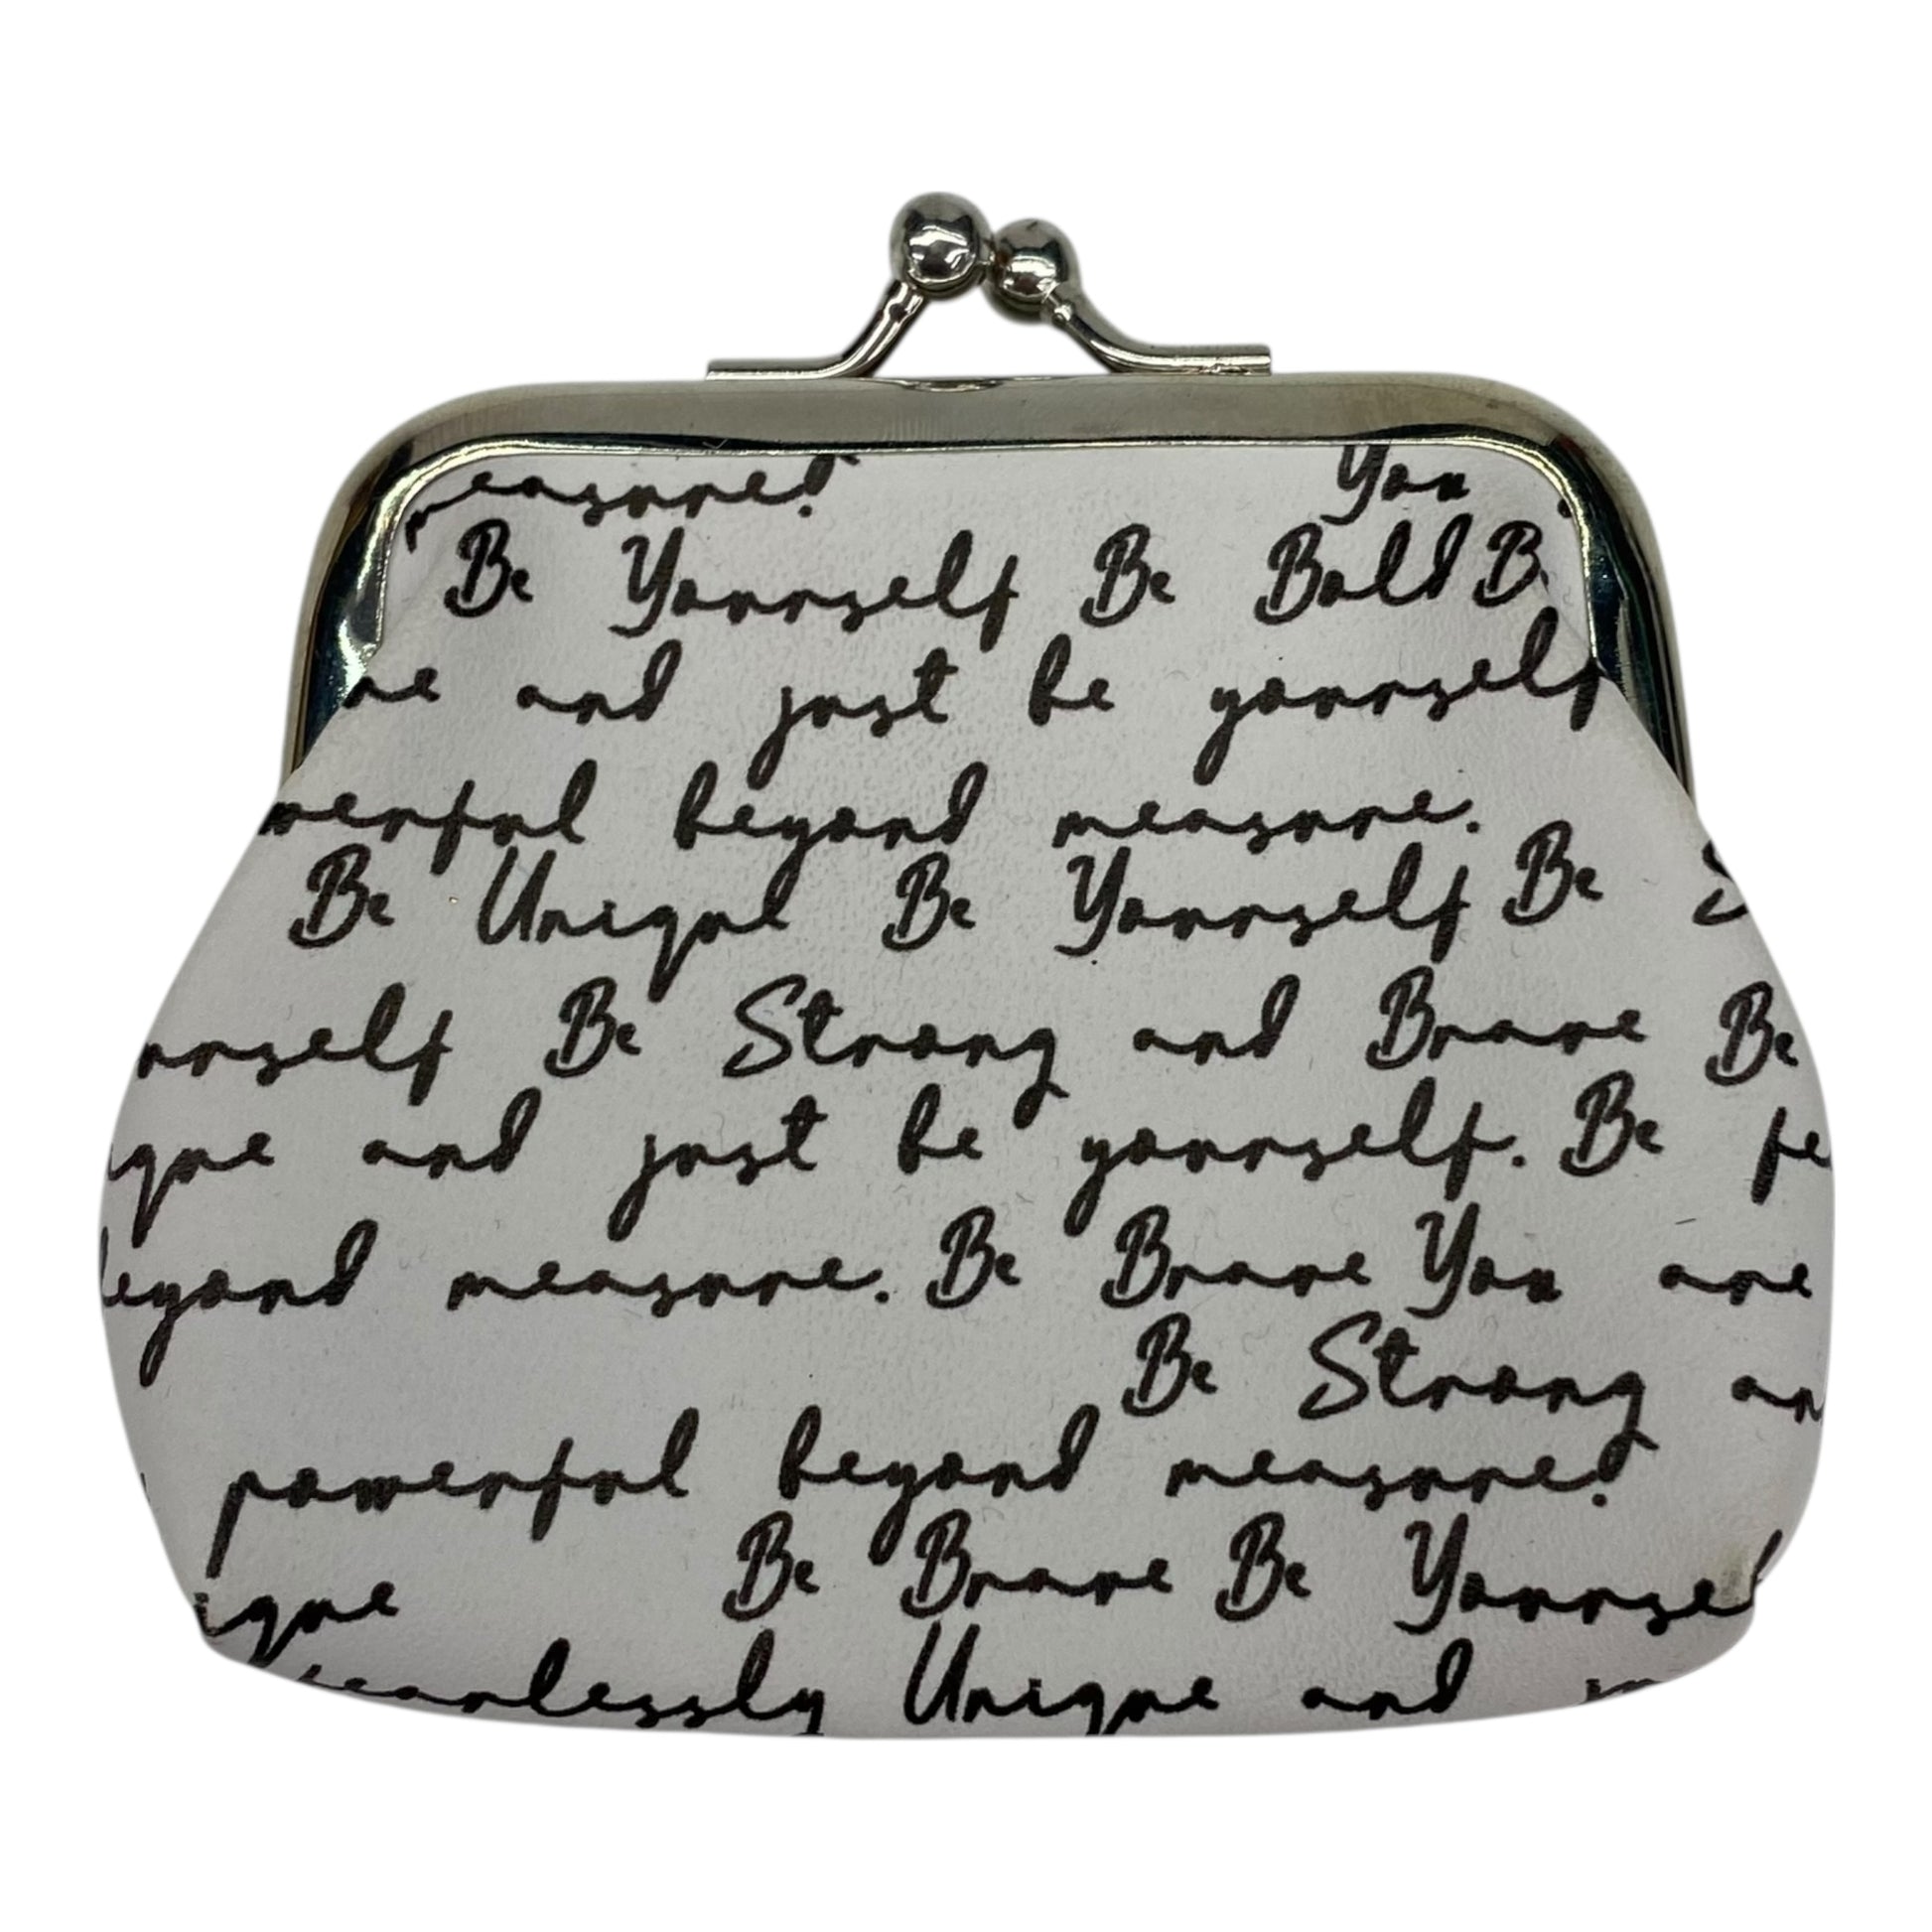 measure! You
Be Yourself Be Bold B
and just be yourself
werful beyond measure.
Be Unique Be Yourself Be S
urself Be Strong and Brave Be
ique and just be yourself. Be fe
beyond measure. Be Brave You are
Be Strong an
powerful beyond measure!
ique Be Brave Be Yoursel
fearlessly Unique and